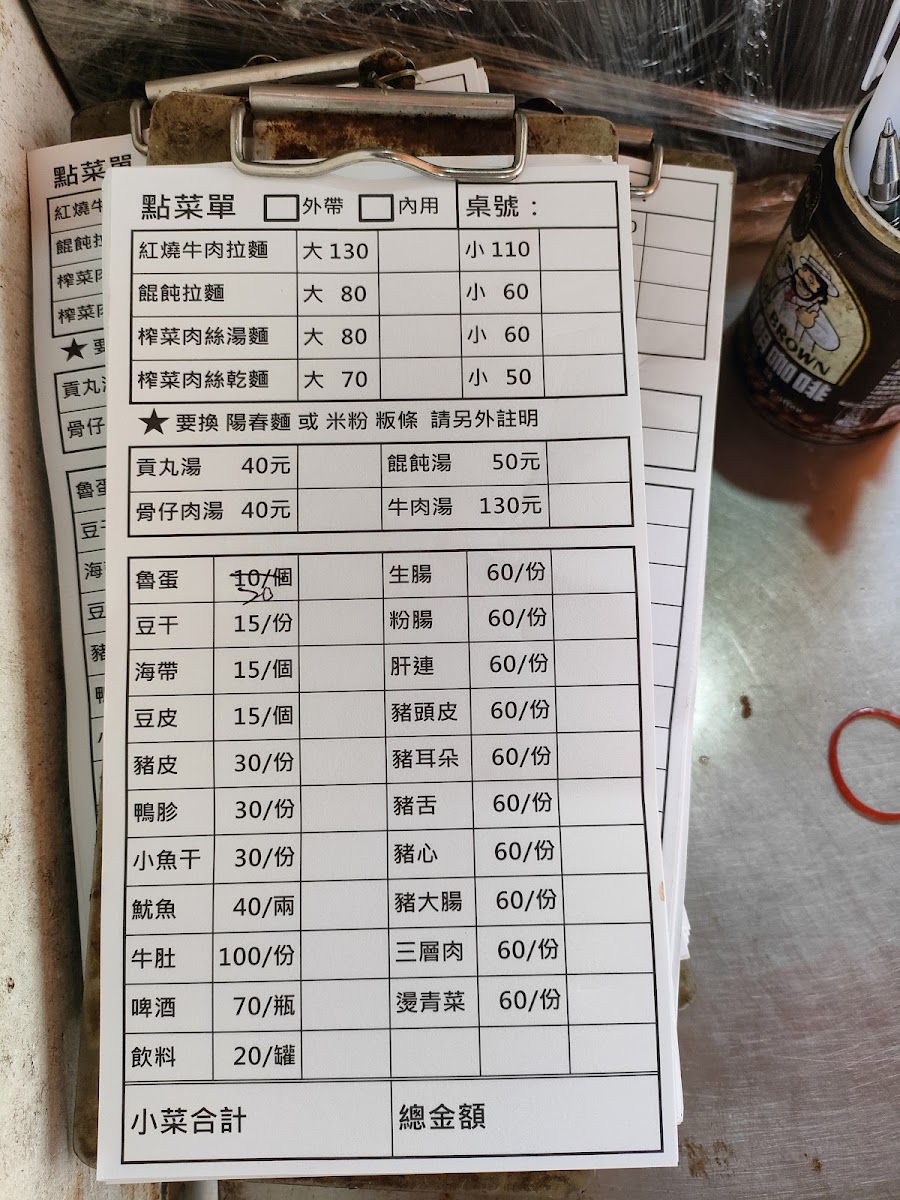 點菜單 外帶 內用 桌號：
紅燒牛肉拉麵 大 130 小 110
餛飩拉麵 大 80 小 60
榨菜肉絲湯麵 大 80 小 60
榨菜肉絲乾麵 大 70 小 50
★要換 陽春麵 或 米粉 粄條 請另外註明
貢丸湯 40元 餛飩湯 50元
骨仔肉湯 40元 牛肉湯 130元
魯蛋 10/個 生腸 60/份
豆干 15/份 粉腸 60/份
海帶 15/個 肝連 60/份
豆皮 15/個 豬頭皮 60/份
豬皮 30/份 豬耳朵 60/份
鴨胗 30/份 豬舌 60/份
小魚干 30/份 豬心 60/份
魷魚 40/兩 豬大腸 60/份
牛肚 100/份 三層肉 60/份
啤酒 70/瓶 燙青菜 60/份
飲料 20/罐
小菜合計 總金額
點菜單
紅燒牛
餛飩拉
榨菜肉
榨菜肉
★要
貢丸湯
骨仔
魯蛋
豆干
海
豆
豬
鴨
BROWN